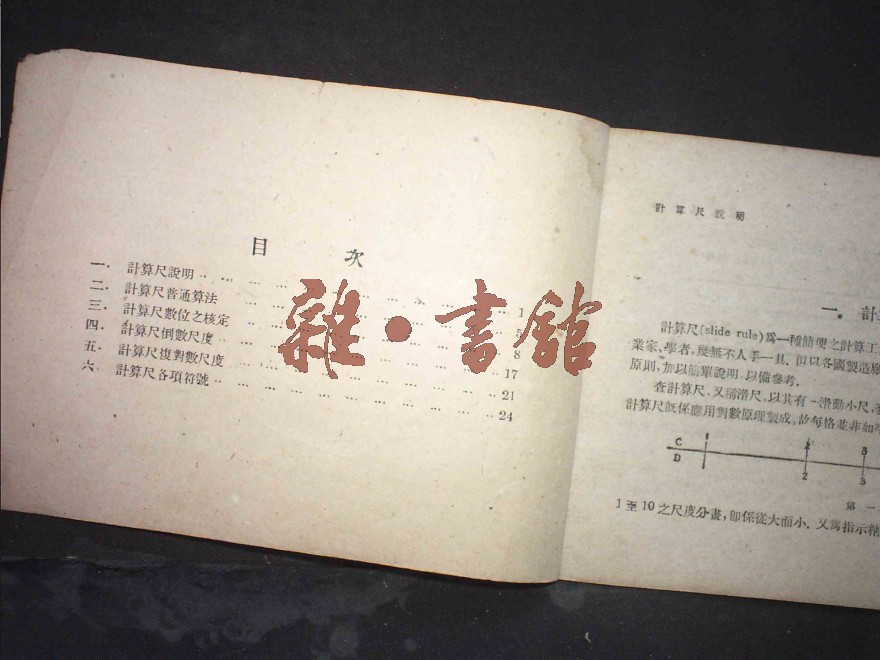 目 次
一. 計算尺說明 ... 1
二. 計算尺普通算法 ... 5
三. 計算尺數位之核定 ... 8
四. 計算尺倒數尺度 ... 17
五. 計算尺復對數尺度 ... 21
六. 計算尺各項符號 ... 24
雜·書館
計算尺說明
一. 計
計算尺(slide rule)爲一種簡便之計算工
業家、學者，幾無不人手一具. 但以各國製造
原則，加以簡單說明. 以備參考.
查計算尺、又稱滑尺，以其有一滑動小尺，
計算尺旣係應用對數原理製成，故每格並非如
C 1 2 3
D 2 3
第一
1至10之尺度分畫，卽係從大而小. 又爲指示精